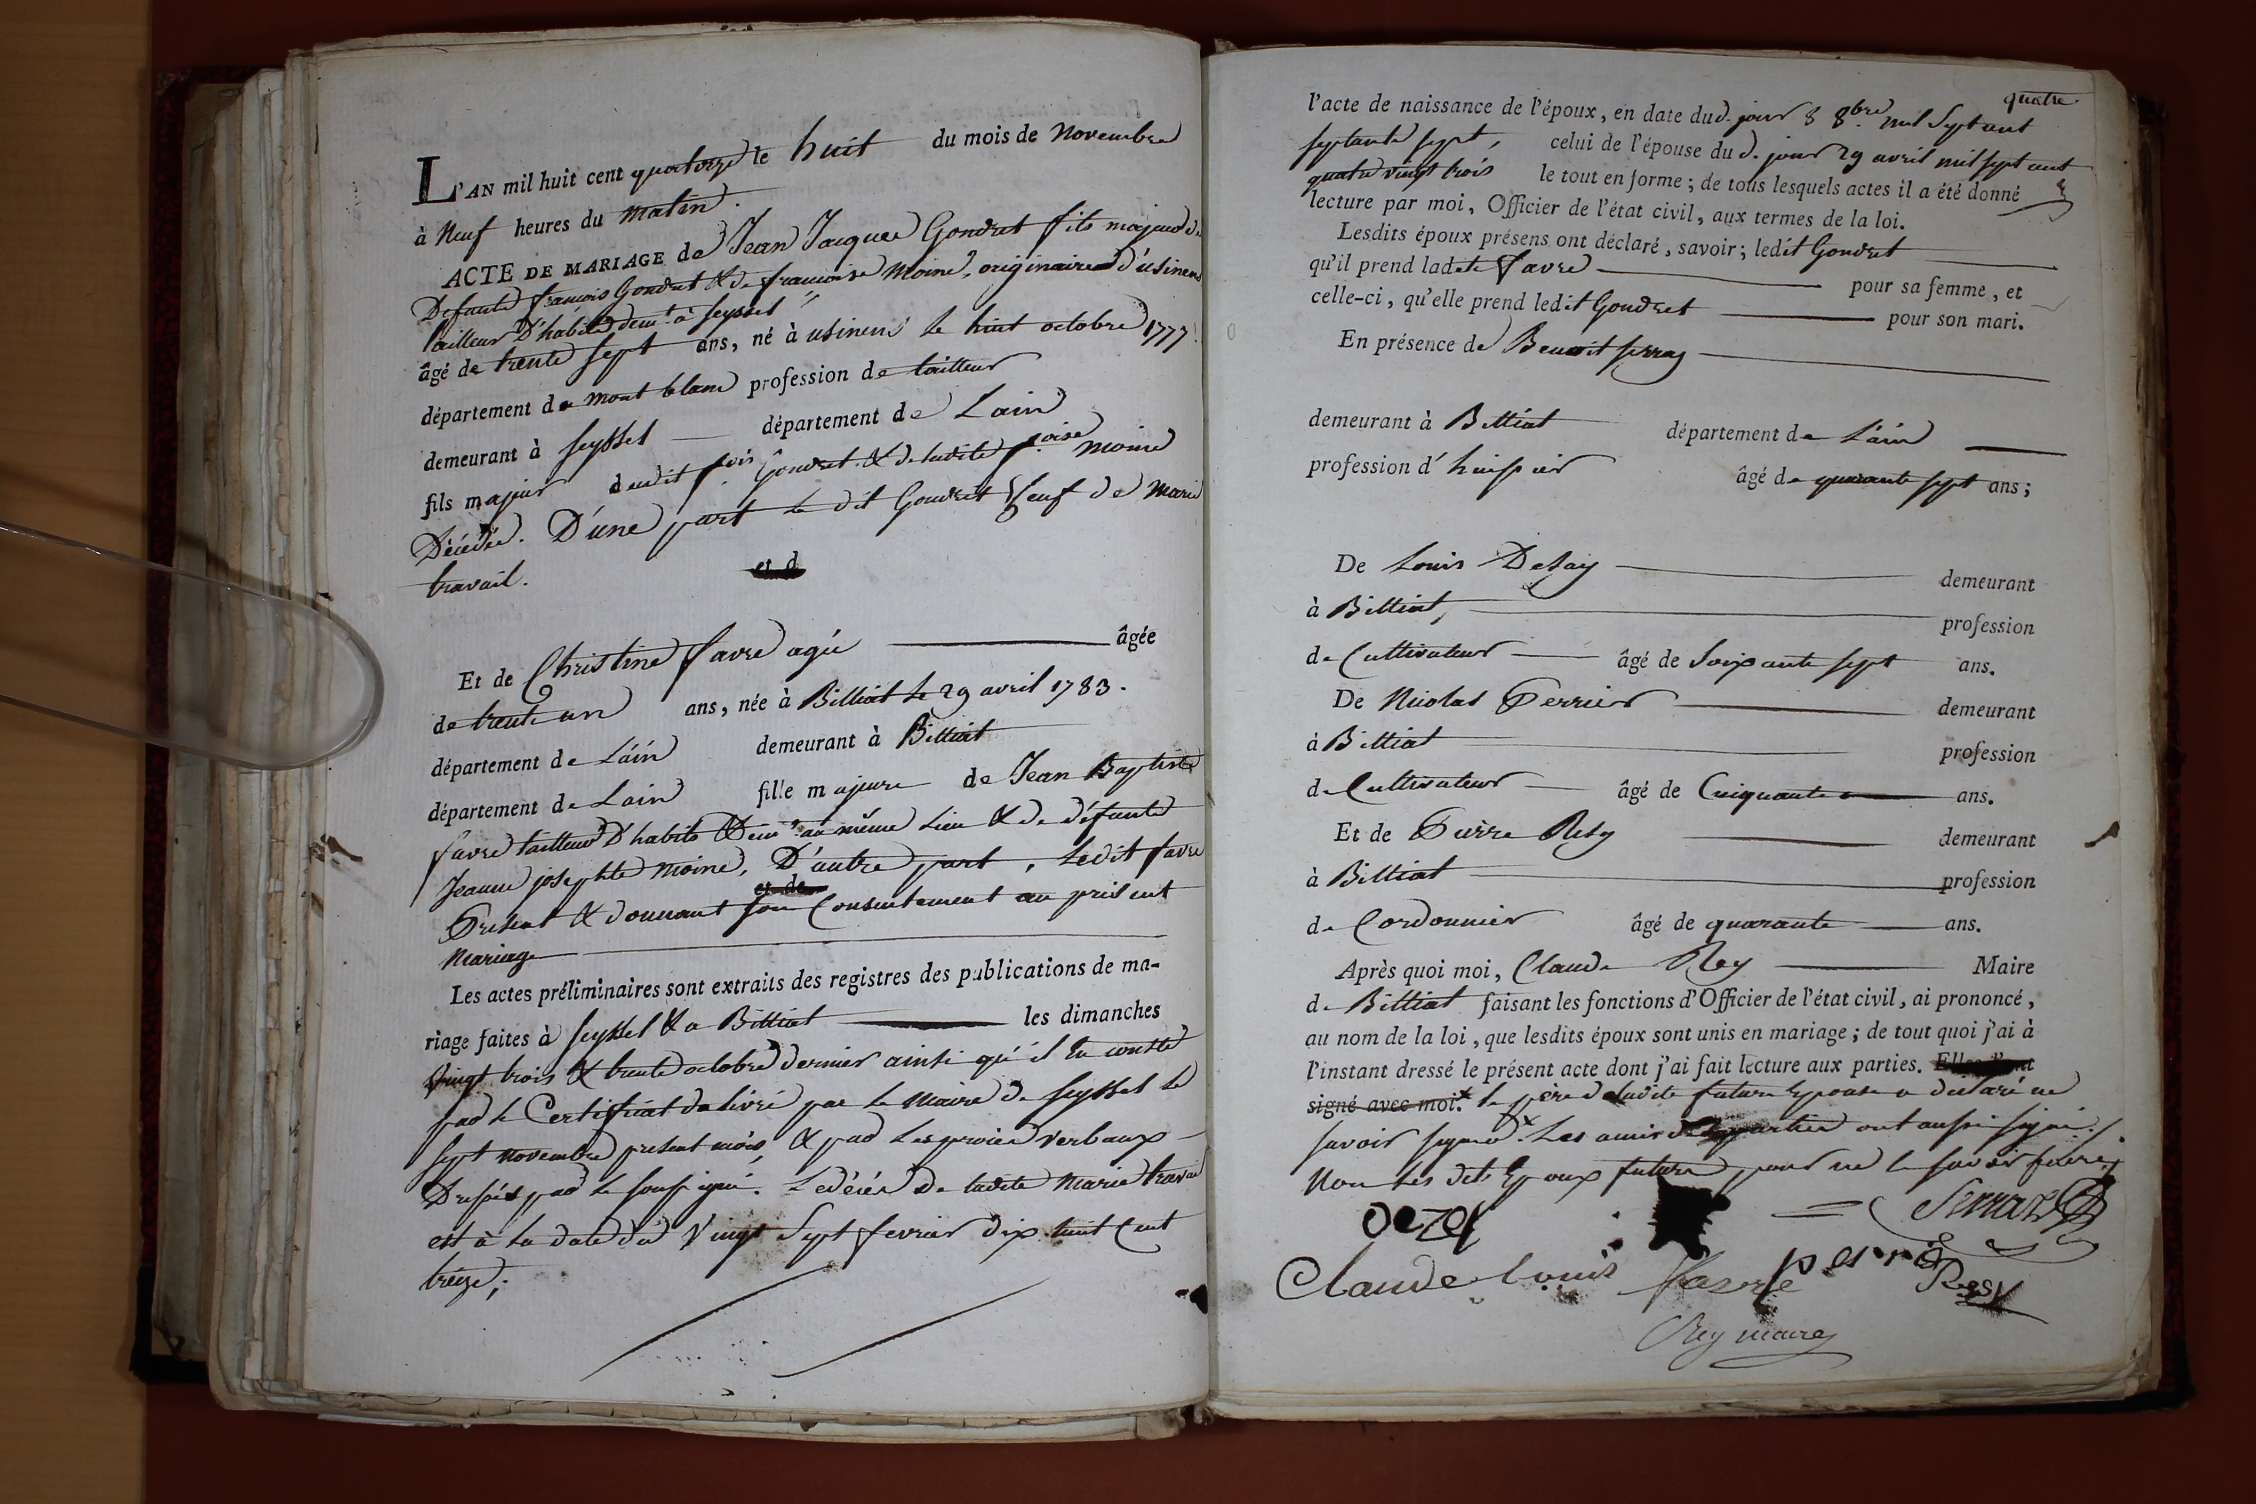 L'AN mil huit cent quatorze le huit du mois de Novembre
à Neuf heures du matin.
ACTE DE MARIAGE de Jean Jacques Gondret fils majeur de
Defunts françois Gondret & de françoise Moine, originaire d'usinens
tailleur D'habits demt. à Seyssel
âgé de trente sept ans, né à usinens le huit octobre 1777
département de mont blanc profession de tailleur
demeurant à Seyssel département de Lain
fils majeur dudit fois. Gondret & de ladite foise. moine
Décédée. D'une part le dit Gondret Veuf de Marie
travail.
et d
Et de Christine favre agée âgée
de trente un ans, née à Billiat le 29 avril 1783.
département de L'ain demeurant à Billiat
département de Lain fille majeure de Jean Baptiste
favre tailleur D'habits Demt. au même Lieu & de défunte
Jeanne josephte Moine, D'autre part, Ledit favre
et de
Present & donnant son Consentement au présent
Mariage
Les actes préliminaires sont extraits des registres des publications de ma-
riage faites à Seyssel & a Billiat les dimanches
Vingt trois & trente octobre dernier ainsi qu'il En conste
par le Certificat delivré par le Maire de Seyssel le
sept novembre present mois, & par Les procès verbaux
Dressés par le soussigné. Le décés de ladite Marie travail
est à La date du Vingt Sept fevrier dix huit Cent
treize;
quatre
l'acte de naissance de l'époux, en date du d. jour 8 8bre. mil Sept cent
septante sept, celui de l'épouse du d. jour 29 avril mil sept cent
quatre vingt trois le tout en forme; de tous lesquels actes il a été donné
lecture par moi, Officier de l'état civil, aux termes de la loi.
Lesdits époux présens ont déclaré, savoir; ledit Gondret
qu'il prend ladite favre pour sa femme, et
celle-ci, qu'elle prend ledit Gondret pour son mari.
En présence de Benoit Serraz
demeurant à Billiat département de L'ain
profession d'huissier âgé de quarante sept ans;
De Louis Dezay demeurant
à Billiat, profession
de Cultivateur âgé de Soixante sept ans.
De Nicolas Perrier demeurant
à Billiat profession
de Cultivateur âgé de Cinquante ans.
Et de Pierre Resy demeurant
à Billiat profession
de Cordonnier âgé de quarante ans.
Après quoi moi, Claude Rey Maire
de Billiat faisant les fonctions d'Officier de l'état civil, ai prononcé,
au nom de la loi, que lesdits époux sont unis en mariage; de tout quoi j'ai à
l'instant dressé le présent acte dont j'ai fait lecture aux parties. Elles l'ont
signé avec moi. le père de ladite future Epouse a déclaré ne
savoir signer. Les amis des parties ont aussi signé.
Non les dits Epoux futurs pour ne le savoir faire
Dezey Serraz
Claude Louis favre perrié Resy
Rey maire